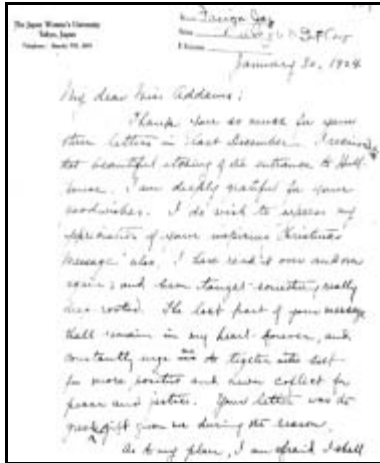 The Japan Women's University
Tokyo, Japan
January 30, 1924
My dear Miss Addams:
Thank you so much for your
three letters in last December. I received
that beautiful etching of the entrance to Hull-
House. I am deeply grateful for your
good wishes. I do wish to express my
appreciation of your inspiring Christmas
message also. I have read it over and over
again, and been taught something really
deep rooted. The last part of your message
shall remain in my heart forever, and
constantly urge me to
for more positive and
peace and justice. Your letter was the
great gift given me during the season.
As to my plan, I am afraid I shall